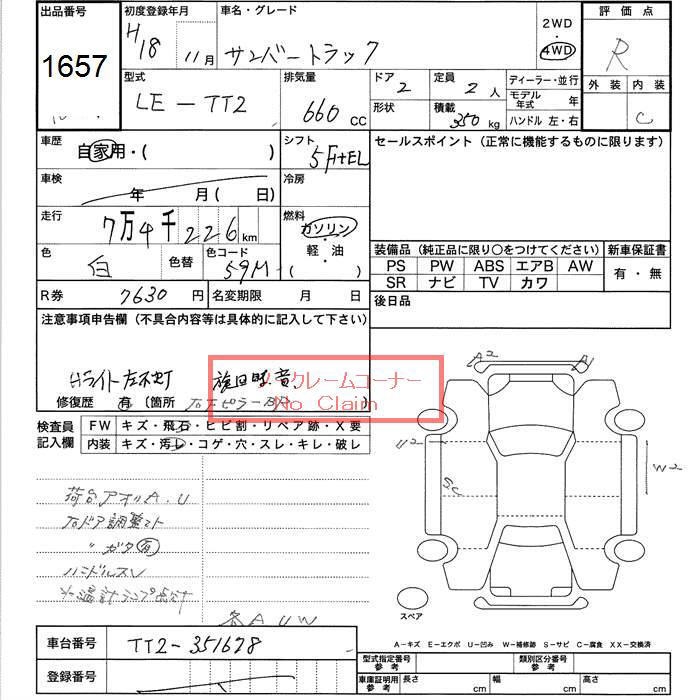 出品番号 初度登録年月 車名・グレード 2WD 評価点
1657 H18 11月 サンバートラック ・ 4WD R
型式 排気量 ドア 2 定員 2 人 ディーラー・並行 外装 内装
LE-TT2 660 CC 形状 積載 350 kg モデル年式 年 C
ハンドル 左・右
車歴 自家用・( ) シフト 5F+EL セールスポイント(正常に機能するものに限ります)
車検 年 月( 日) 冷房
走行 7万4千226km 燃料 ガソリン・軽・油( )
色 白 色替 色コード 59M
装備品(純正品に限り○をつけてください) 新車保証書
PS PW ABS エアB AW 有・無
SR ナビ TV カワ
R券 7630円 名変期限 月 日 後日品
注意事項申告欄(不具合内容等は具体的に記入して下さい)
Hライト左不灯
ノークレームコーナー
No Claim
修復歴 有 〔箇所
A2 A1
検査員記入欄 FW キズ・飛石・ヒビ割・リペア跡・X要
内装 キズ・汚レ・コゲ・穴・スレ・キレ・破レ
U2 W2
SC
荷台アオリA.U
ドア調整
ガタ有
ハンドルスレ
水温計ランプ点灯
各AUW
スペア
A-キズ E-エクボ U-凹み W-補修跡 S-サビ C-腐食 XX-交換済
車台番号 TT2-351678
型式指定番号 参考 類別区分番号 参考
登録番号 車庫証明用 参考 長さ cm 幅 cm 高さ cm